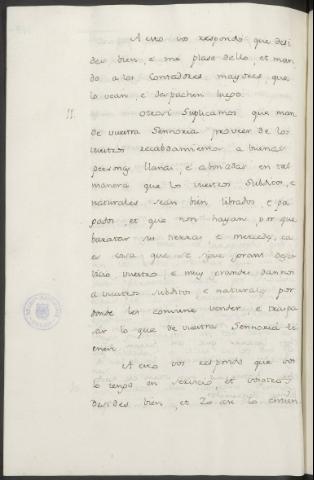 A esto vos respondo que desi
des bien, e me plase dello, et man
do a los Contadores mayores que
lo vean, e despachen luego.
11 Otrosi Suplicamos que man
de vuestra Sennoria proveer de los
vuestros recabdamientos a buenas
personas llanas, e abonadas en tal
manera que los vuestros Subditos, e
naturales sean bien librados, e pa
gados, et que non hayan por que
baratar sus tierras e mercedes, ca
es cosa que se sigue
vuestro e muy grandes dannos
a vuestros subditos e naturales por
donde les conviene vender, e
lo que de vuestra Sennoria tie
nen.
A esto vos respondo que vos
lo tengo en servicio, et vosotros
desides bien, et Yo asi lo entien